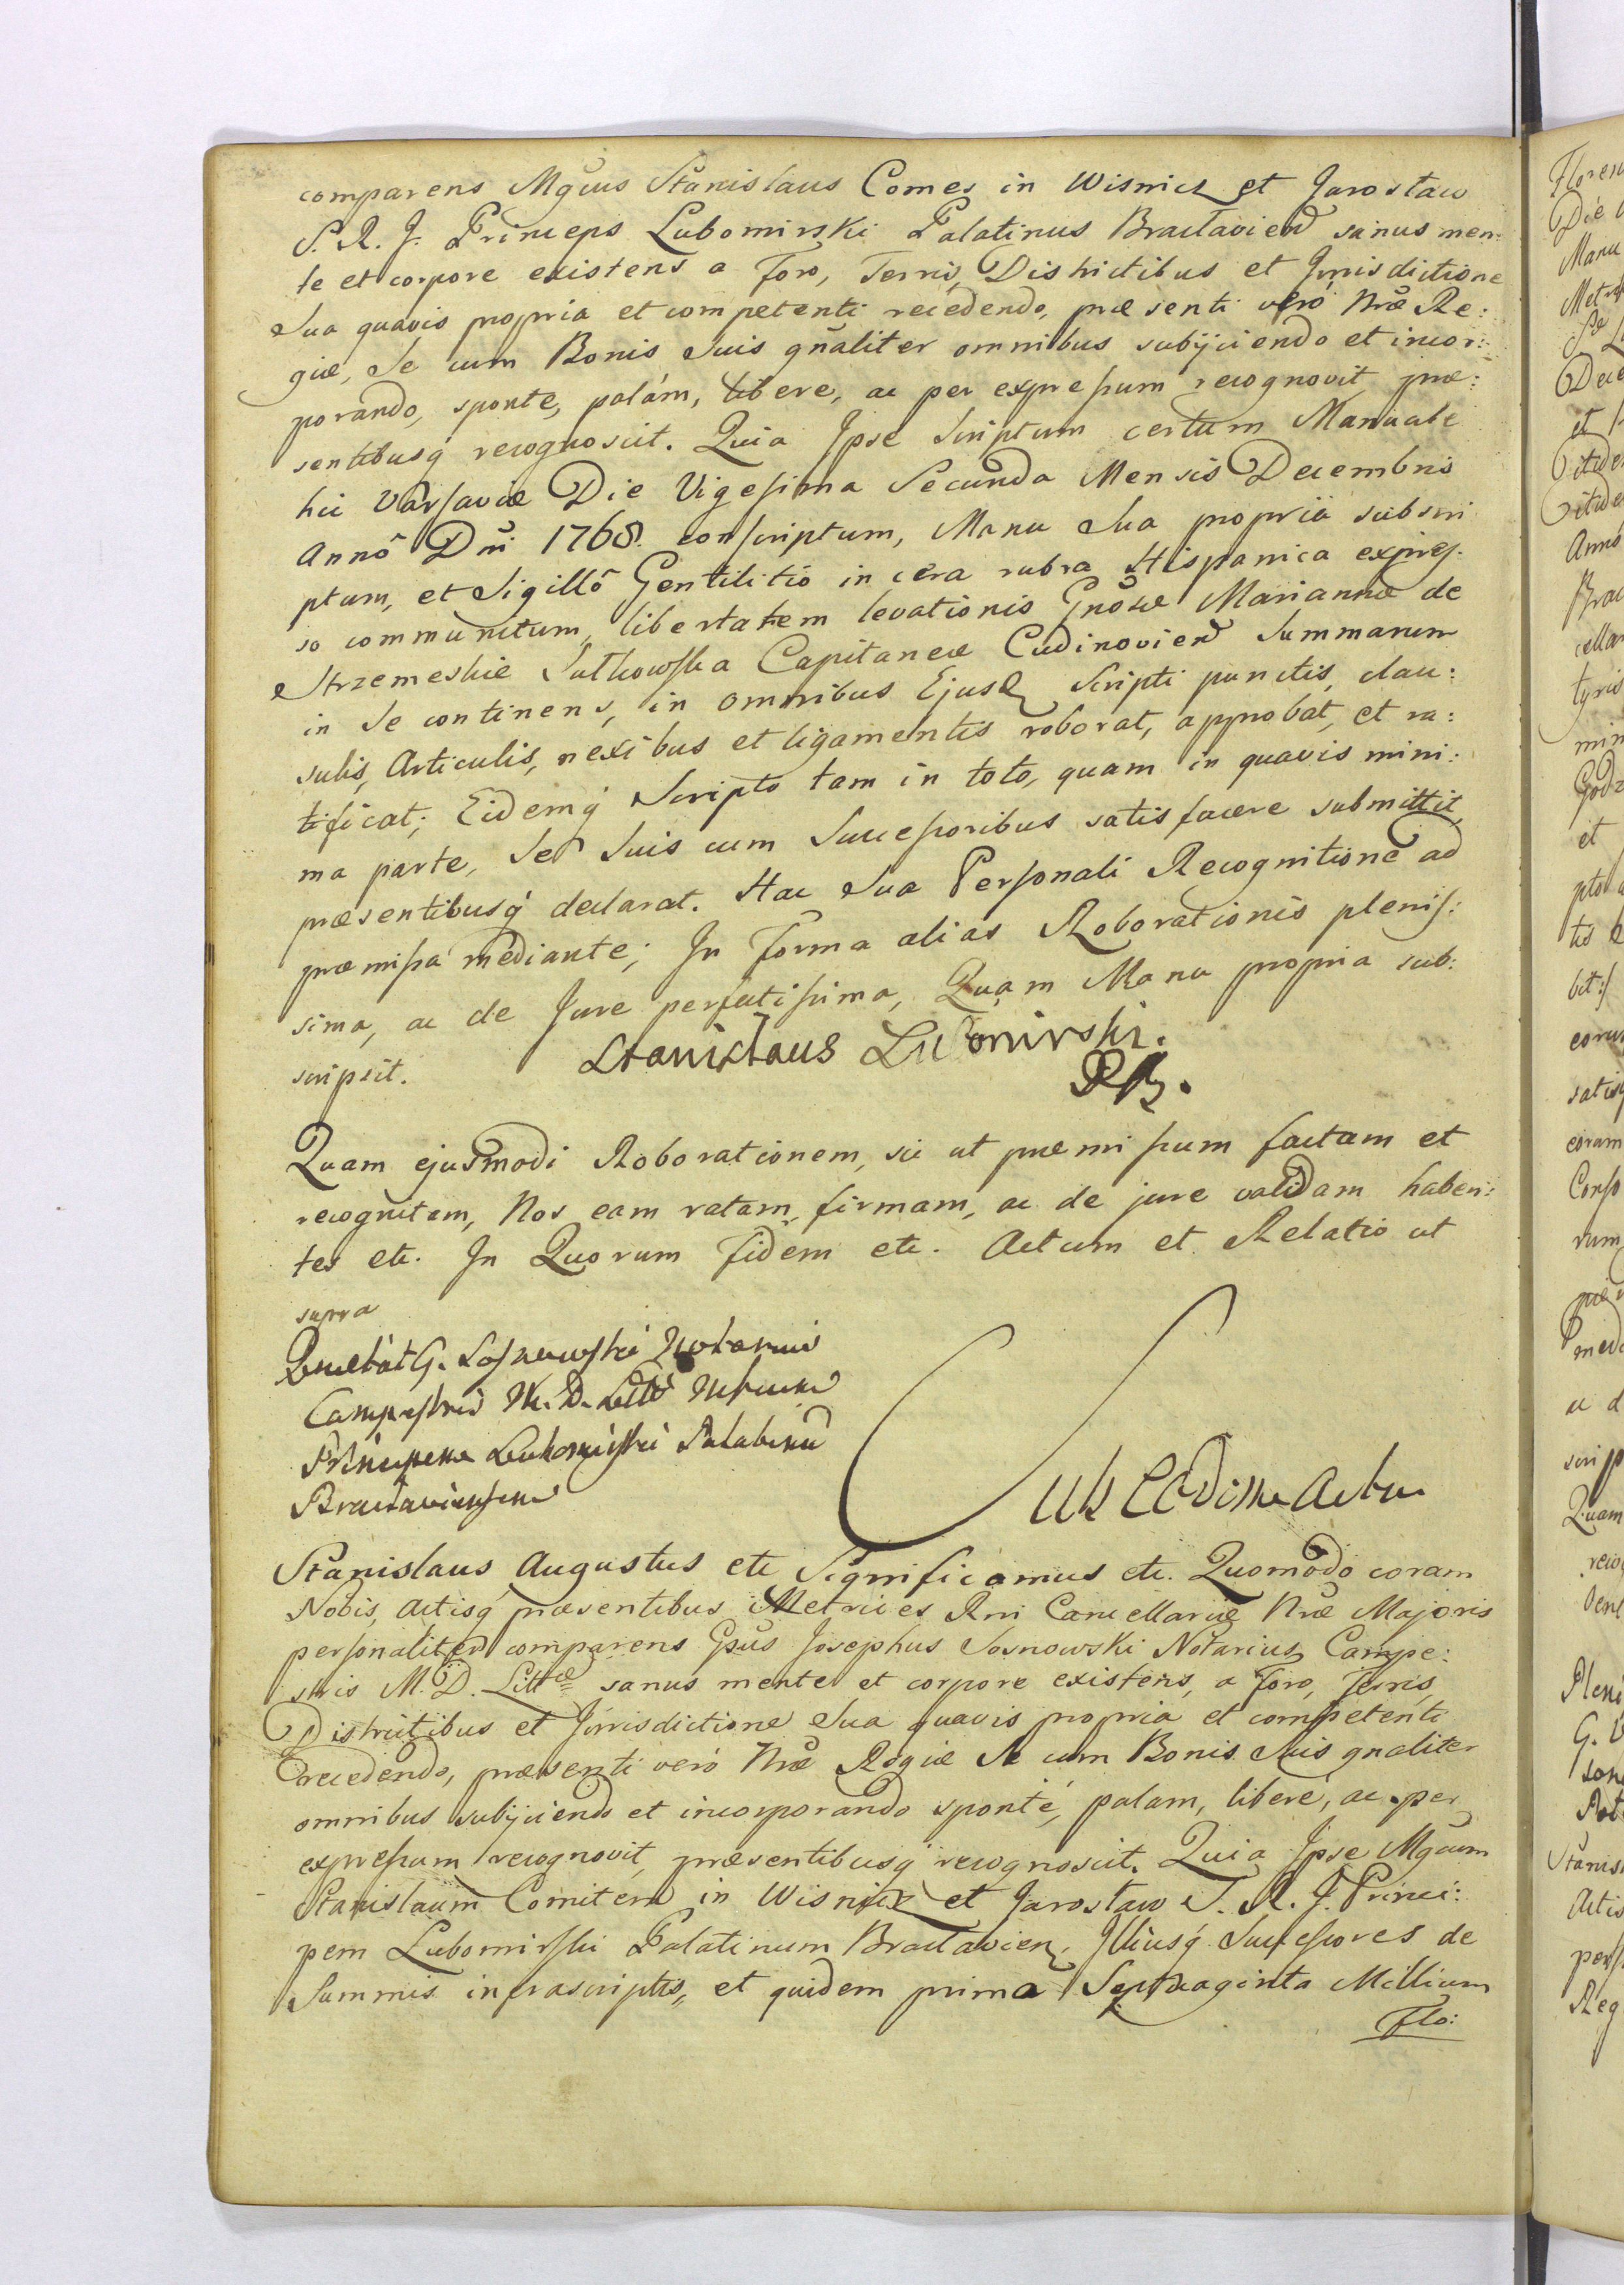 comparens Mgcus Stanislaus Comes in Wisnicz et Jarosław
S. R. J. Princeps Lubomirski Palatinus Bractavien sanus men:
te et corpore existens a Foro, Terris, Districtibus et Jurisdictione
Sua quavis propria et competenti recedendo, præsenti verò Nræ Re:
giæ, Se cum Bonis Suis gñaliter omnibus subijciendo et incor:
porando, sponte, palám, libere, ac per expressum recognovit, præ:
sentibusq́ recognoscit. Quia Ipse Scriptum certum Manuale
hic Varsaviæ Die Vigesima Secunda Mensis Decembris
Annô Dni 1768. conscriptum, Manu Sua propria subscri
ptum, et Sigillô Gentilitio in cera rubra Hispanica expres.
so communitum, libertatem levationis Gnosæ Mariannæ de
Strzemeskie Sutkowska Capitaneæ Cudinovien Summarum
in Se continens, in omnibus Ejusd Scripti punctis, clau:
sulis, Articulis, nexibus et ligamentis roborat, approbat, et ra:
tificat; Eidemq́ Scripto tam in toto, quam in quavis mini:
ma parte, Se Suis cum Successoribus satisfacere submittit,
præsentibusq́ declarat. Hac Sua Personali Recognitione ad
præmissa mediante; In Forma alias Roborationis plenis:
sima, ac de Jure perfectissima, Quam Manu propria sub:
scripsit.
Stanislaus Lubomirski.
PB.
Quam ejusmodi Roborationem, sic ut præmissum factam et
recognitam, Nos eam ratam, firmam, ac de jure validam haben:
tes etc. In Quorum Fidem etc. Actum et Relatio ut
supra
G. Notarius
Campestris M. D. Litt
Principem Lubomirski Palatinum
Bractaviensem
Stanislaus Augustus etc Significamus etc. Quomodo coram
Nobis, Actisq́ præsentibus Metrices Rni Cancellariæ Nræ Majoris
personaliter comparens Gsus Josephus Sosnowski Notarius Campe:
stris M. D. Littæ sanus mente et corpore existens, a Foro, Terris,
Districtibus et Jurisdictione Sua quavis propria et competenti
recedendo, præsenti verò Nræ Regiæ Se cum Bonis Suis gnaliter
omnibus subijciendo et incorporando sponté, palam, liberé, ac per
expressum recognovit, præsentibusq́ recognoscit. Quia Ipse Mgcum
Stanislaum Comitem in Wisnicz et Jarosław S. R. J. Princi:
pem Lubomirski Palatinum Bractavien, Illiusq́ Successores de
Summis infrascriptis, et quidem prima Septuaginta Millium
Flo: